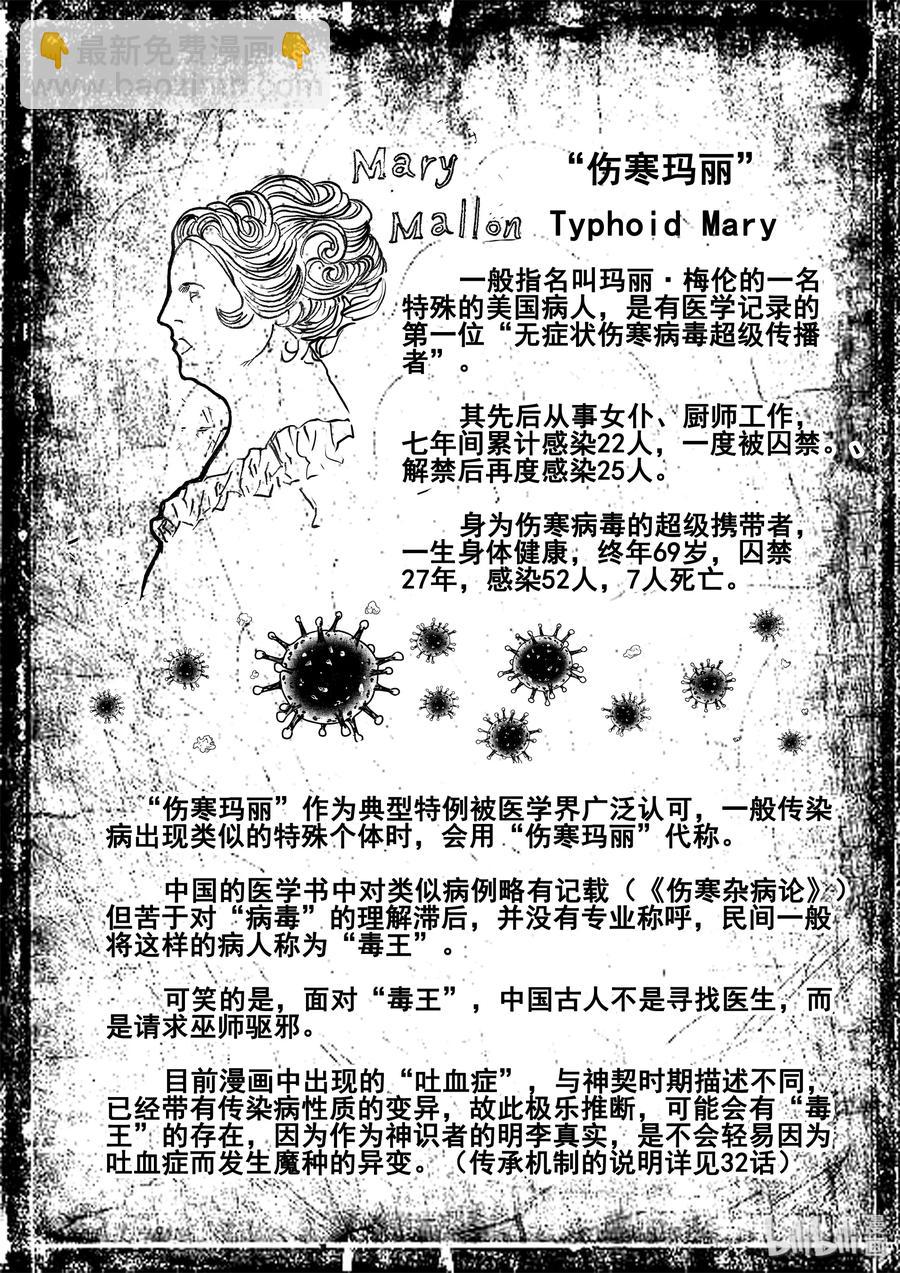 👇最新免费漫画👇
Mary
Mallon
“伤寒玛丽”
Typhoid Mary
一般指名叫玛丽·梅伦的一名
特殊的美国病人，是有医学记录的
第一位“无症状伤寒病毒超级传播
者”。
其先后从事女仆、厨师工作，
七年间累计感染22人，一度被囚禁。
解禁后再度感染25人。
身为伤寒病毒的超级携带者，
一生身体健康，终年69岁，囚禁
27年，感染52人，7人死亡。
“伤寒玛丽”作为典型特例被医学界广泛认可，一般传染
病出现类似的特殊个体时，会用“伤寒玛丽”代称。
中国的医学书中对类似病例略有记载（《伤寒杂病论》）
但苦于对“病毒”的理解滞后，并没有专业称呼，民间一般
将这样的病人称为“毒王”。
可笑的是，面对“毒王”，中国古人不是寻找医生，而
是请求巫师驱邪。
目前漫画中出现的“吐血症”，与神契时期描述不同，
已经带有传染病性质的变异，故此极乐推断，可能会有“毒
王”的存在，因为作为神识者的明李真实，是不会轻易因为
吐血症而发生魔种的异变。（传承机制的说明详见32话）
bilibili